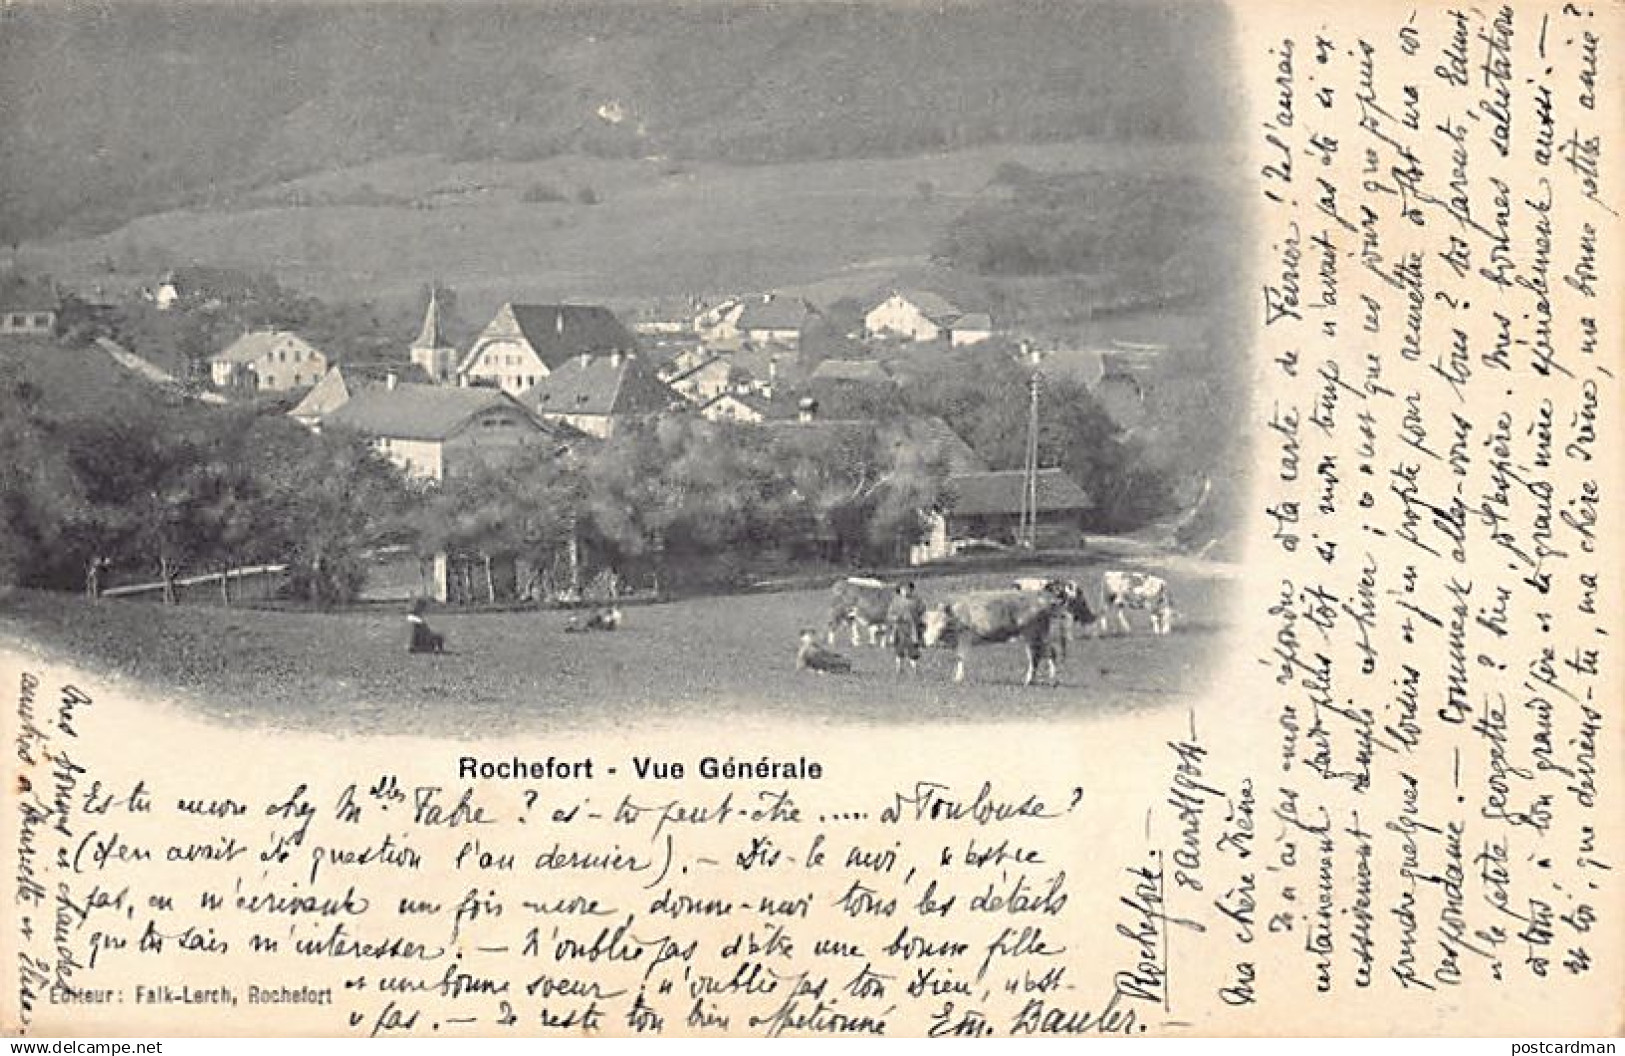 Rochefort.
8 avril 1904
Ma chère Irène
Je n'ai pas mon répondu à ta carte de Février! Je l'aurais
certainement fait plus tôt si mon temps n'avait pas été si ex-
cessivement rempli cet hiver; ce n'est que ces jours que je puis
prendre quelques loisirs et j'en profite pour remettre à flot ma cor-
respondance. — Comment allez-vous tous? tes parents, Edmond,
et la petite Georgette? bien, j'espère. Mes bonnes salutations
à tous, à ton grand'père et ta grand'mère spécialement aussi. —
Et toi, que deviens-tu, ma chère Irène, ma bonne petite amie?
Rochefort - Vue Générale
Est tu encore chez Melles Fabre? es-tu peut-être ..... à Toulouse?
(Il en avait été question l'an dernier). — Dis-le moi, n'est-ce
pas, en m'écrivant une fois encore, donne-moi tous les détails
que tu sais m'intéresser. — N'oublie pas d'être une bonne fille
et une bonne soeur; n'oublie pas ton Dieu, n'est-
ce pas. — Je reste ton bien affectionné Em. Bauler. —
Mes bonnes et chaudes
amitiés à Henriette et
Editeur: Falk-Lerch, Rochefort
delcampe.net
postcardman